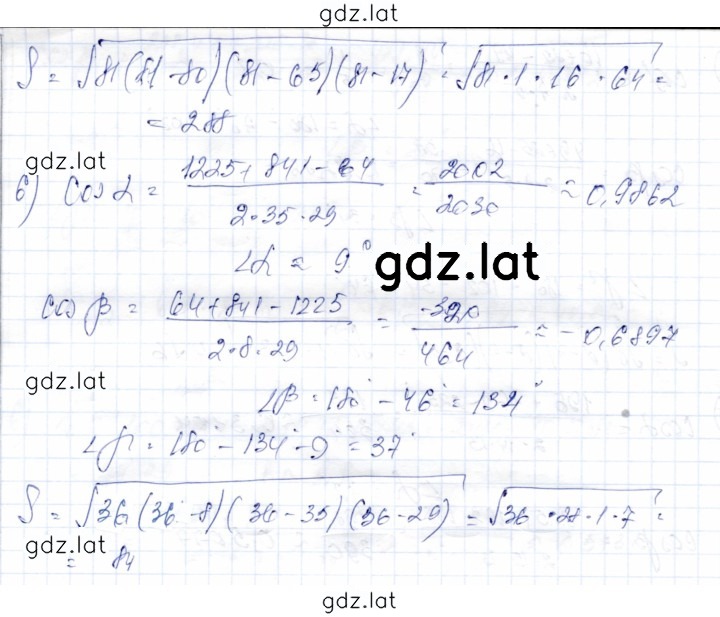 gdz.lat
S = √81(81-80)(81-65)(81-17) = √81·1·16·64 =
= 288
gdz.lat
б) cos α = (1225+841-64)/(2·35·29) = 2002/2030 ≈ 0,9862
∠α ≈ 9°
gdz.lat
cos β = (64+841-1225)/(2·8·29) = -320/464 ≈ -0,6897
gdz.lat
∠β = 180° - 46° = 134°
∠γ = 180° - 134° - 9° = 37°
S = √36(36-8)(36-35)(36-29) = √36·28·1·7 =
gdz.lat
= 84
gdz.lat